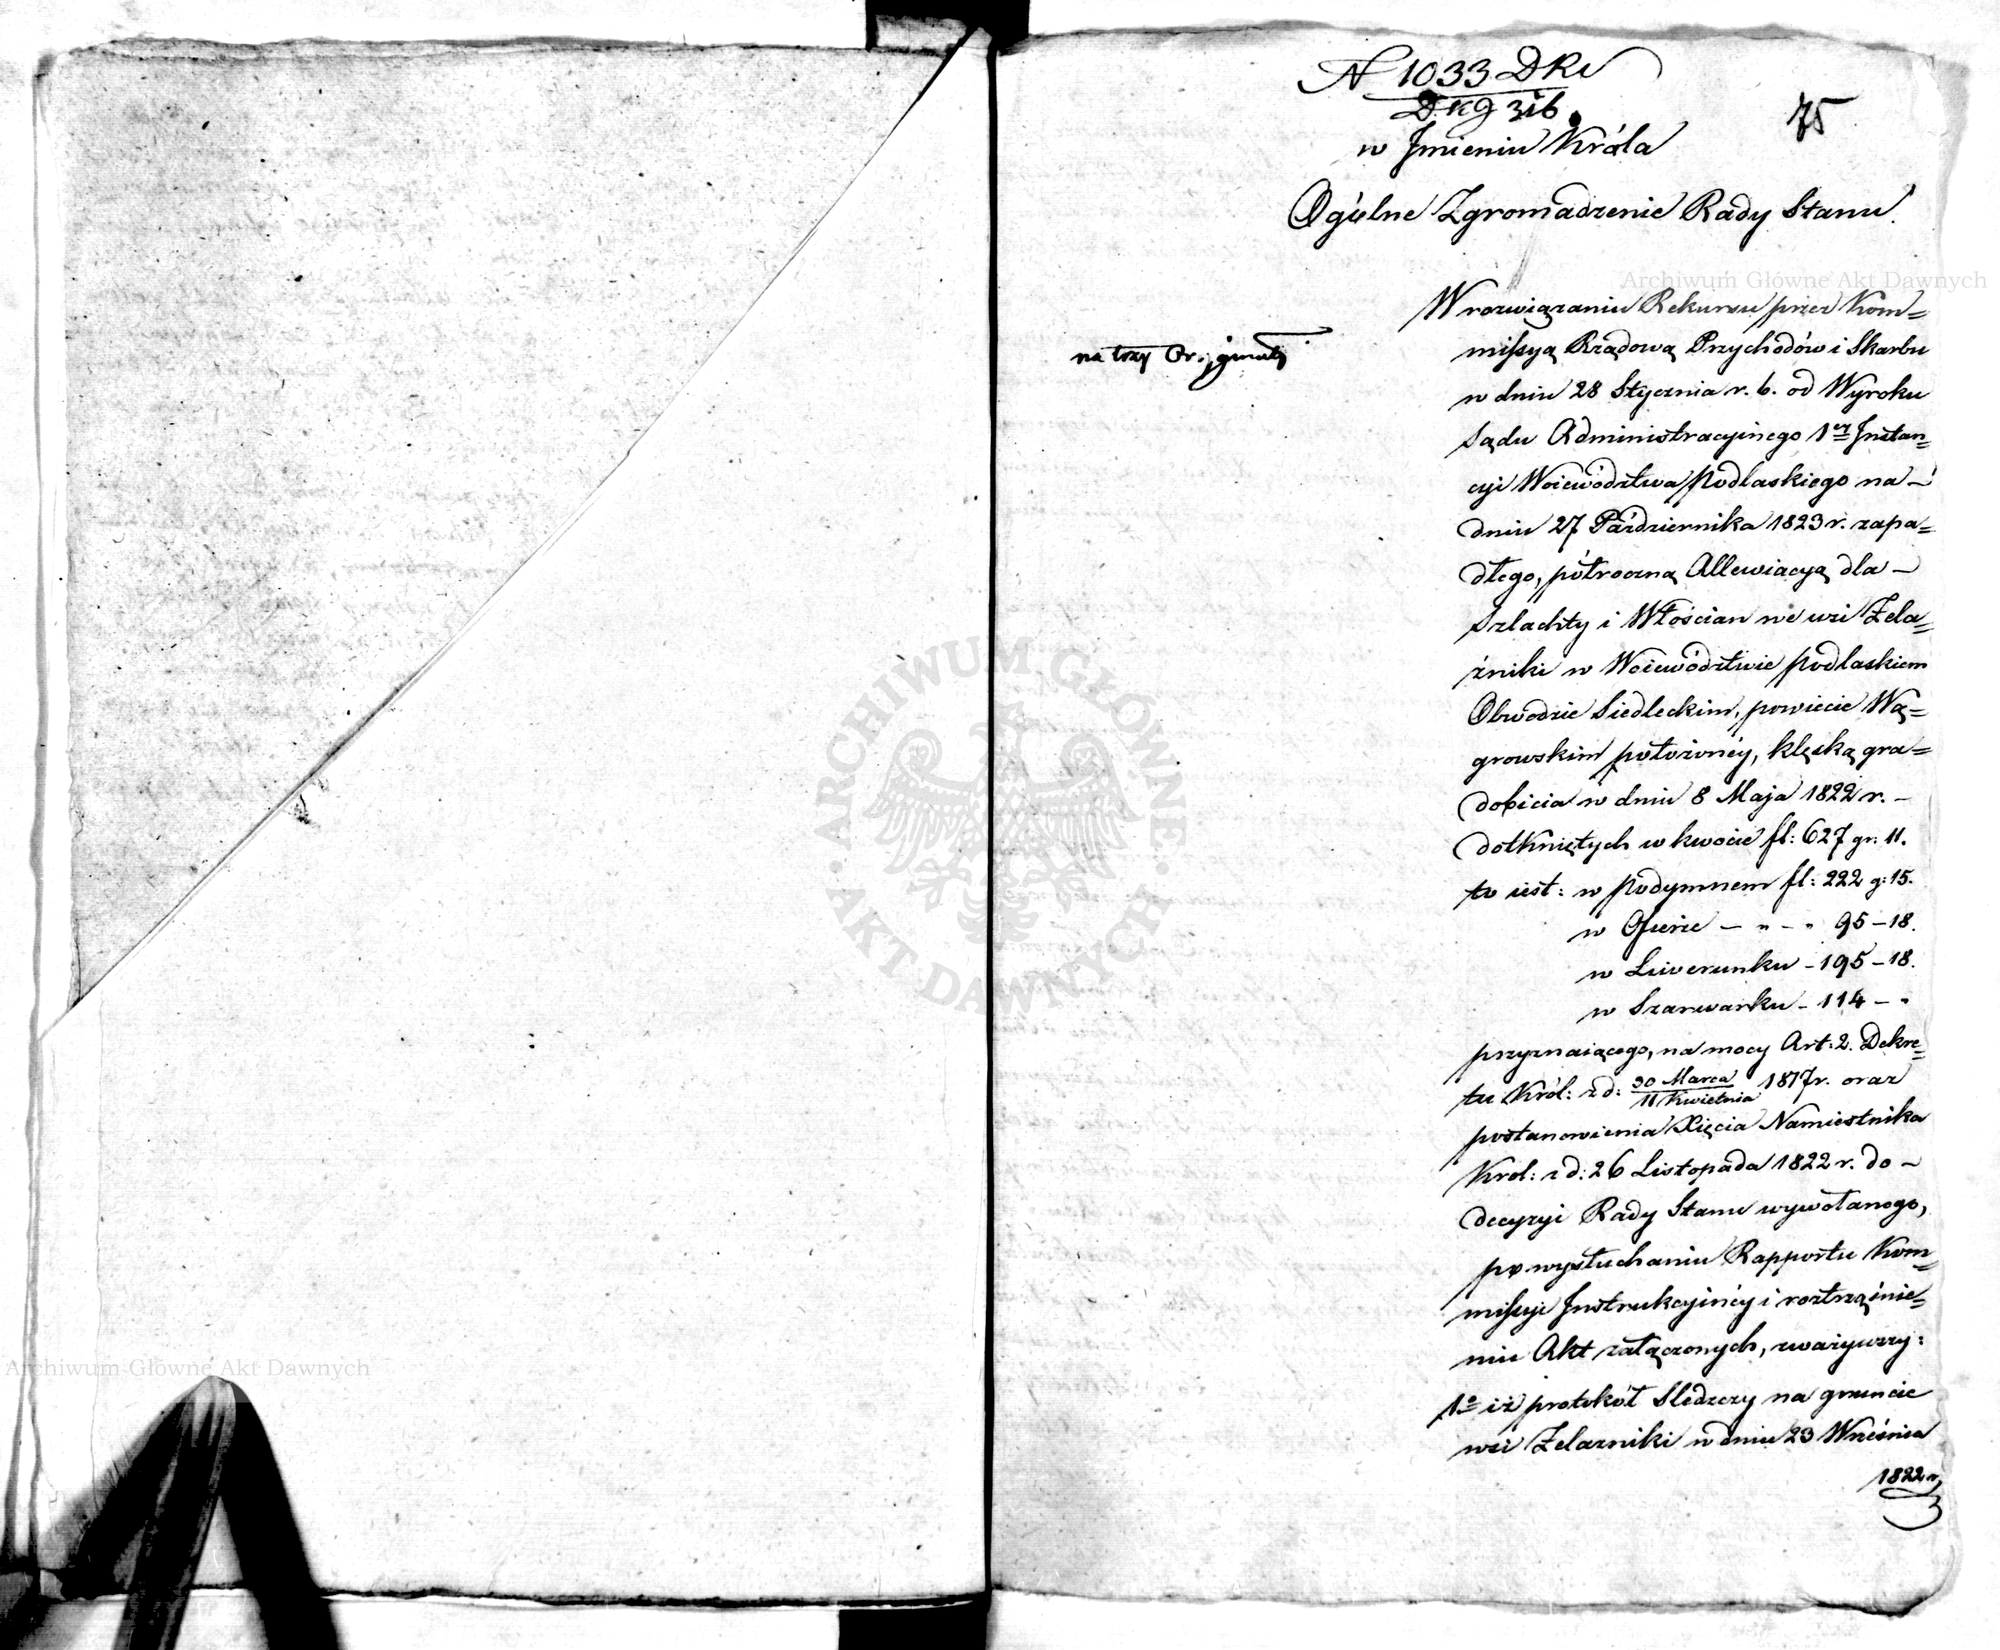 N 1033 DKr
DKG 316.
75
w Jmieniu Króla
Ogólne Zgromadzenie Rady Stanu.
Archiwum Główne Akt Dawnych
W rozwiązaniu Rekursu przez Kom=
missyą Rządową Przychodów i Skarbu
na trzy Oryginały
w dniu 28 Stycznia r. b. od Wyroku
Sądu Administracyinego 1ey Instan=
cyi Woiewództwa Podlaskiego na –
dniu 27 Października 1823 r. zapa=
dłego, półroczną Allewiacyą dla –
Szlachty i Włościan we wsi Żela=
źniki w Woiewództwie Podlaskiem
Obwodzie Siedleckim, powiecie Wę=
growskim położonéy, klęską gra=
dobicia w dniu 8 Maja 1822 r. –
dotkniętych w kwocie fl: 627 gr: 11.
to iest: w Podymnem fl: 222 g: 15.
w Ofierze – " – " 95 – 18.
w Liwerunku – 195 – 18.
w Szarwarku – 114 – "
przyznaiącego, na mocy Art: 2. Dekre=
tu Król: z d: 30 Marca / 11 Kwietnia 1817 r. oraz
postanowienia Xięcia Namiestnika
Król: z d: 26 Listopada 1822 r. do –
decyzyi Rady Stanu wywołanego,
po wysłuchaniu Rapportu Kom=
missyi Instrukcyinéy i roztrząśnie=
niu Akt załączonych, zważywszy:
1o iż protokół Śledczy na gruncie
wsi Żelazniki w dniu 23 Września
1822 r.
ARCHIWUM GŁÓWNE AKT DAWNYCH
Archiwum Główne Akt Dawnych